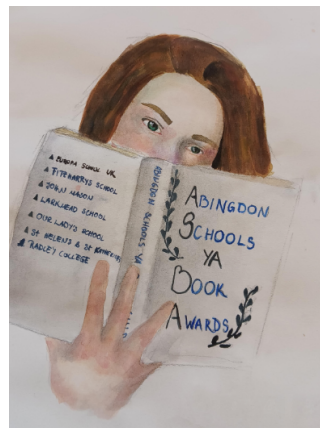 EUROPA SCHOOL UK
FITZHARRYS SCHOOL
JOHN MASON
LARKMEAD SCHOOL
OUR LADY'S SCHOOL
ST HELENS & ST
RADLEY COLLEGE
ABINGDON SCHOOLS YA
ABINGDON
SCHOOLS
YA
BOOK
AWARDS